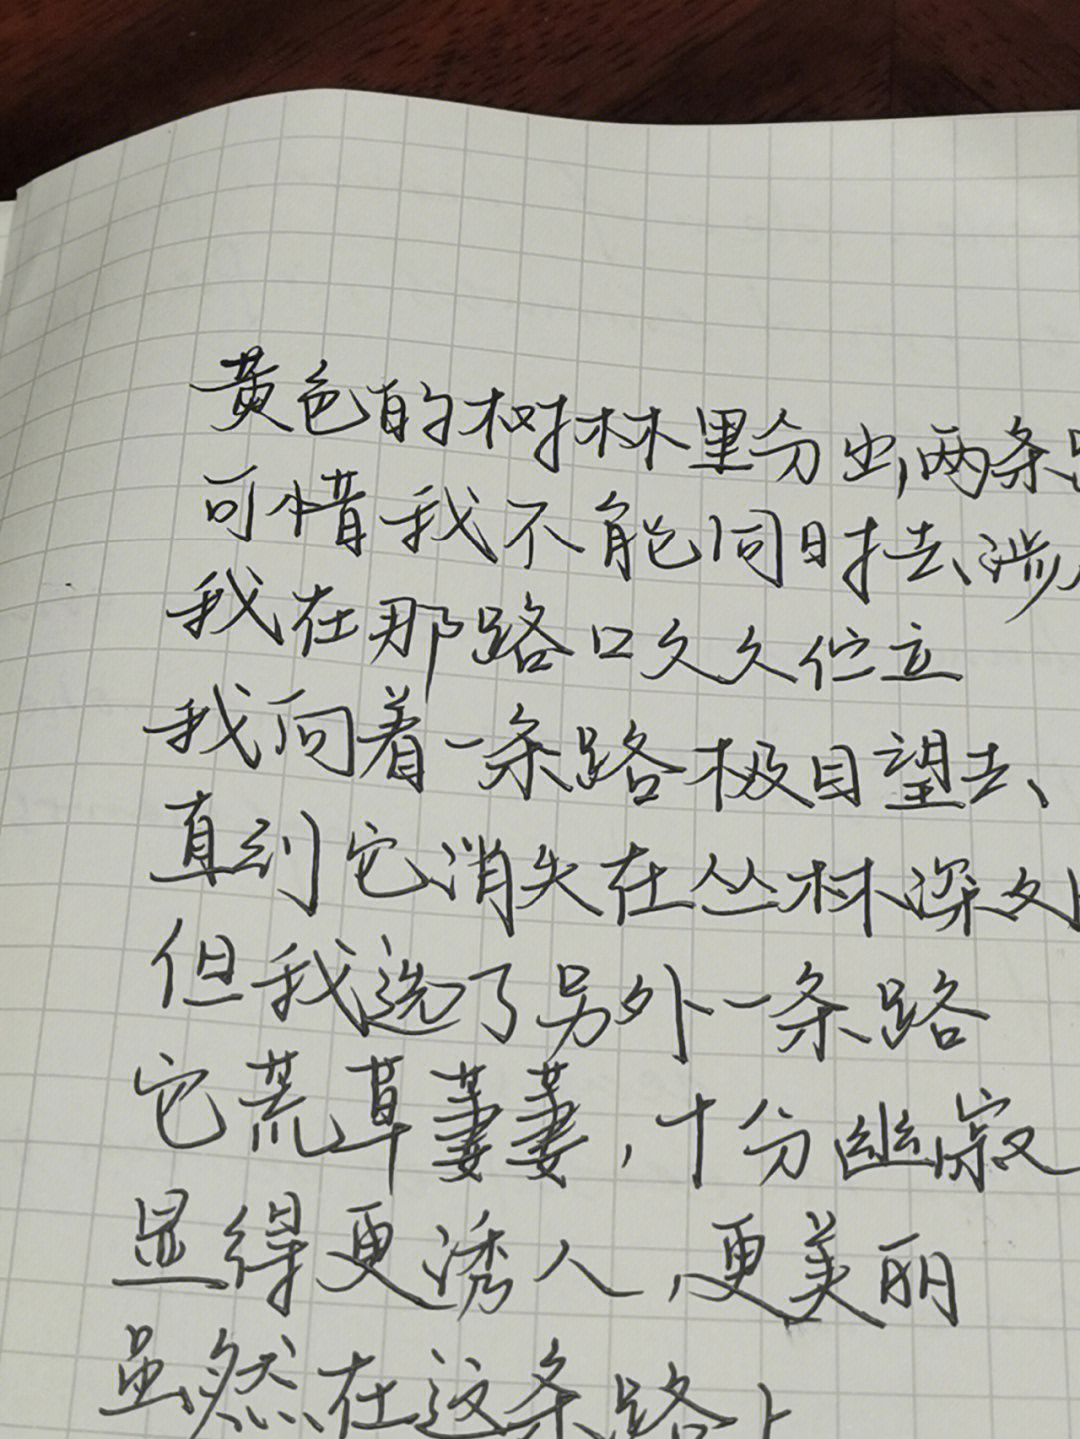 黄色的树林里分出两条
可惜我不能同时去涉
我在那路口久久伫立
我向着一条路极目望去
直到它消失在丛林深处
但我选了另外一条路
它荒草萋萋,十分幽寂
显得更诱人,更美丽
虽然在这条路上